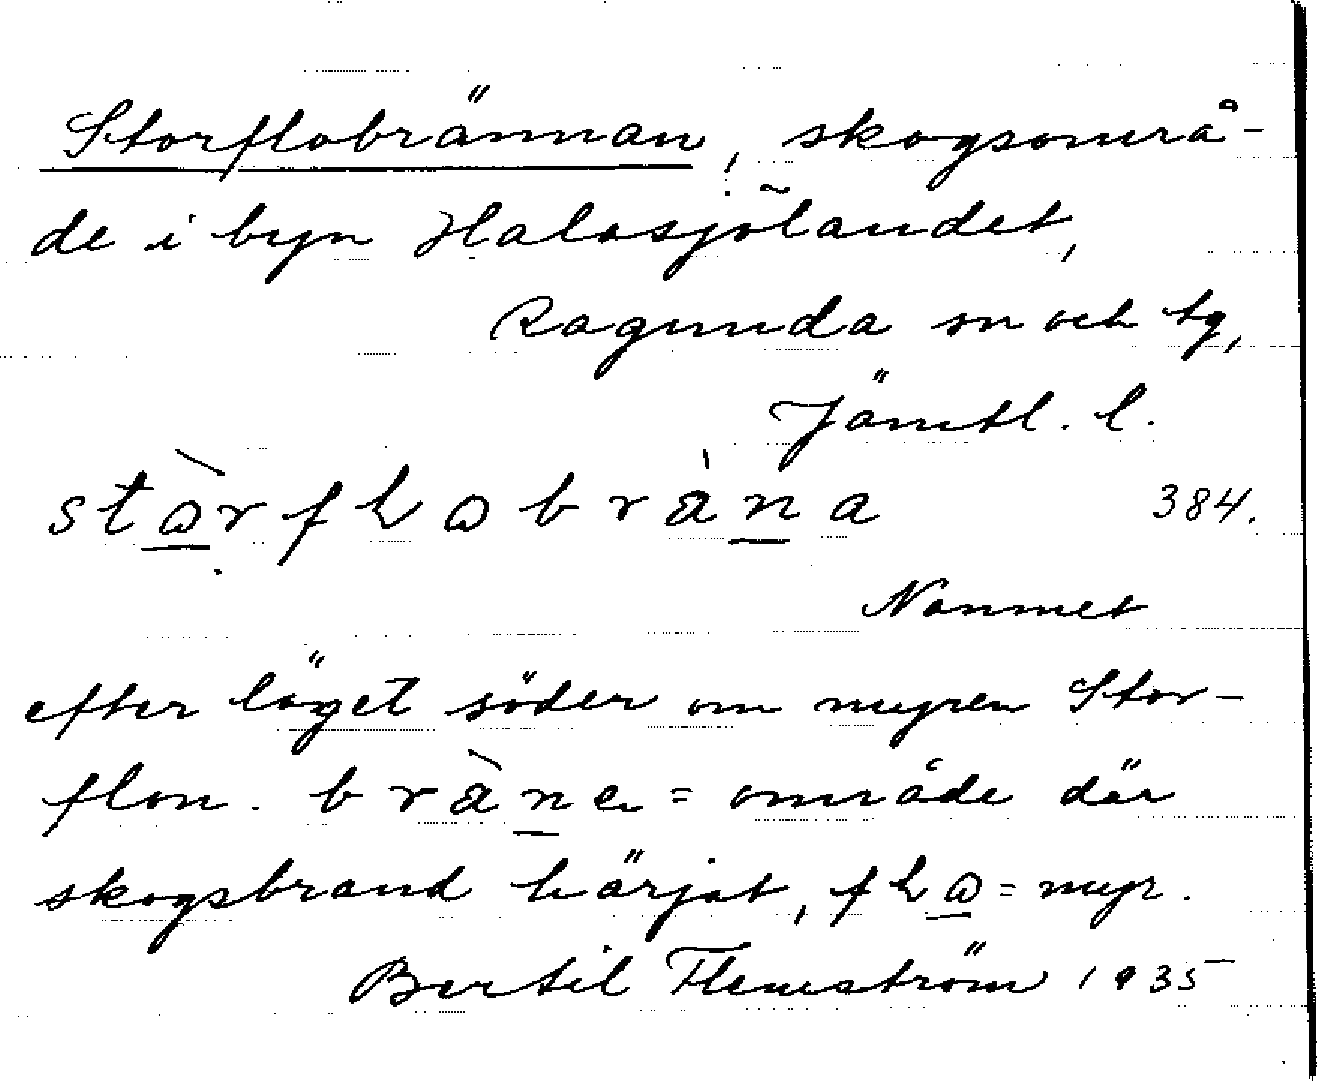 Storflobrännan, skogsområ-
de i byn Halasjölandet,
Ragunda sn och tg,
Jämtl. l.
384.
Namnet
efter läget söder om myren Stor-
flon. = område där
skogsbrand härjat, = myr.
Bertil Flemström 1935